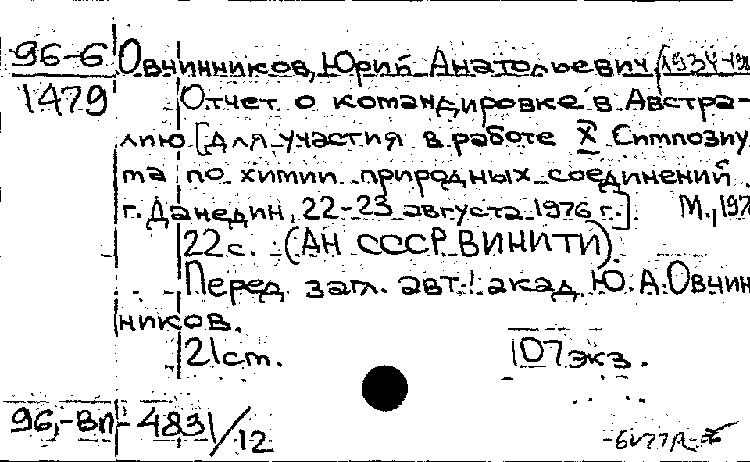 96-6 Овчинников, Юрий Анатольевич (1934-198
1479 Отчет о командировке в Австра-
лию [для участия в работе X Симпозиу
ма по химии природных соединений.
г. Данедин, 22-23 августа 1976 г.]. М., 197
22 с. (АН СССР ВИНИТИ).
Перед загл. авт.: акад. Ю.А. Овчин
ников.
21 ст. 107 экз.
96,-Вп-4831/12